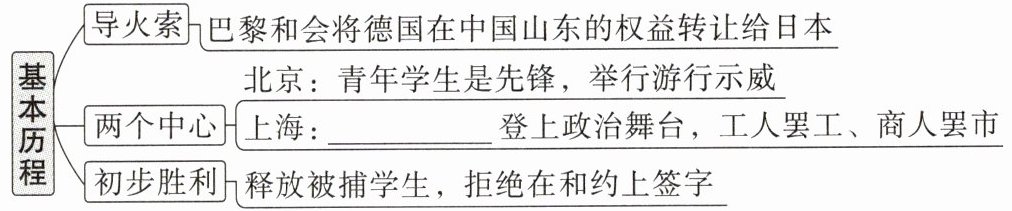 基本历程
导火索
巴黎和会将德国在中国山东的权益转让给日本
两个中心
北京：青年学生是先锋，举行游行示威
上海：__________ 登上政治舞台，工人罢工、商人罢市
初步胜利
释放被捕学生，拒绝在和约上签字